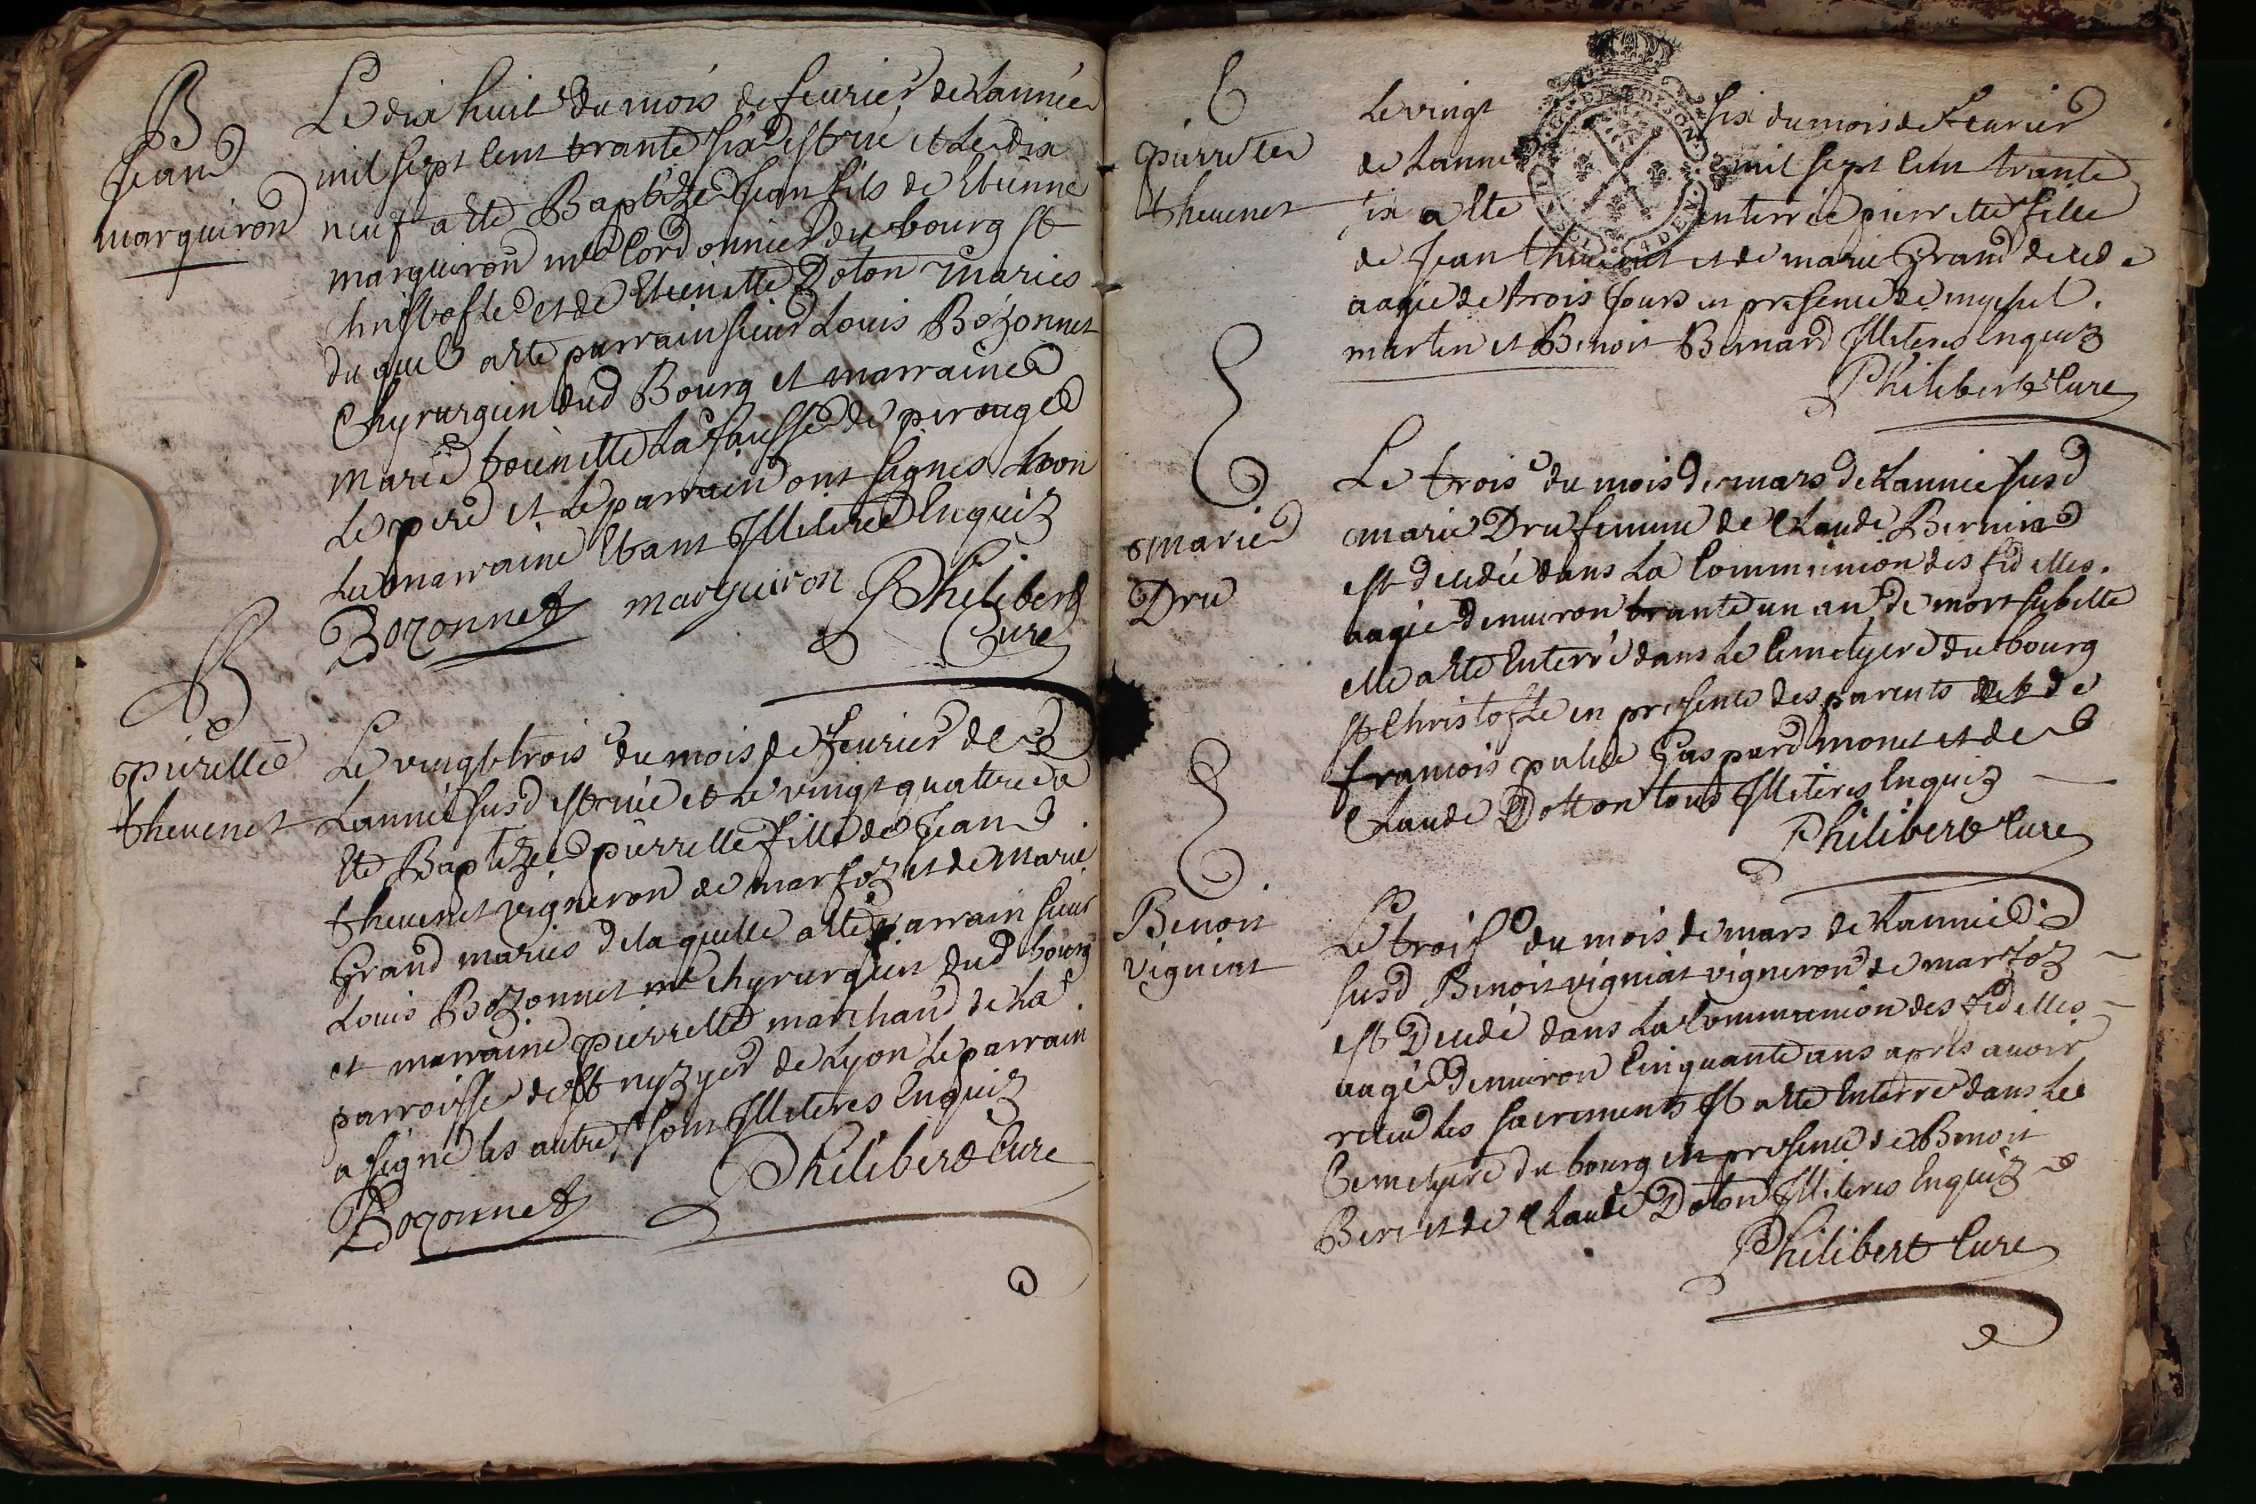 B
Jean
marguiron
Le dix huit du mois de feurier de Lannée
mil sept cent trante six est né et Le dix
neuf a été Baptizé Jean fils de Etienne
marguiron me Cordonnier du bourg st
christofle et de Etienette Doton mariés
du quel a été parrain sieur Louis Bozonnet
Chyrurgien dud Bourg et marraine
marie toinette La de perouge
Le pere et Le parrain ont signes non
La marraine Etant Illiterée Enquis
Bozonnet marguiron Philibert
Cure
B
pierrette
theuenet
Le vingt trois du mois de feurier de
Lannée susd est née et Le vingt quatre a
été Baptizée pierrette fille de Jean
theuenet vigneron de marfoz et de marie
Grand mariés de laquelle a été parrain sieur
Louis Bozonnet me chyrurgien dud bourg
et marraine pierrette marchand de La
parroisse de st nyzyer de Lyon Le parrain
a signé les autres sont Illiterés Enquis
Bozonnet Philibert Cure
pierrete
theuenet
Le vingt six du mois de feurier
de Lannée mil sept cent trante
six a été enterrée pierrette fille
de Jean theuenet et de marie Grand decede
aagée de trois Jours en presence de
martin et Benoit Bernard Illiteres Enquis
Philibert Cure
marie
Dru
Le trois du mois de mars de Lannée susd
marie Dru femme de Claude
est decedée dans La Communion des fidelles
aagée denuiron trante un an de mort subitte
elle a été Enterré dans Le Cemetyere du bourg
st Christofle en presence des parents et de
francois Gaspard monet et de
Claude Dotton tous Illiterés Enquis
Philibert Cure
Benoit
vigniat
Le trois du mois de mars de Lannée
susd Benoit vigniat vigneron de marfoz
est Decedé dans La Communion des fidelles
aagé denuiron Cinquante ans après auoir
receu Les sacrements Il a été Enterré dans Le
Cemetyere du bourg en presence de Benoit
et de Claude Doton Illiteres Enquis
Philibert Cure